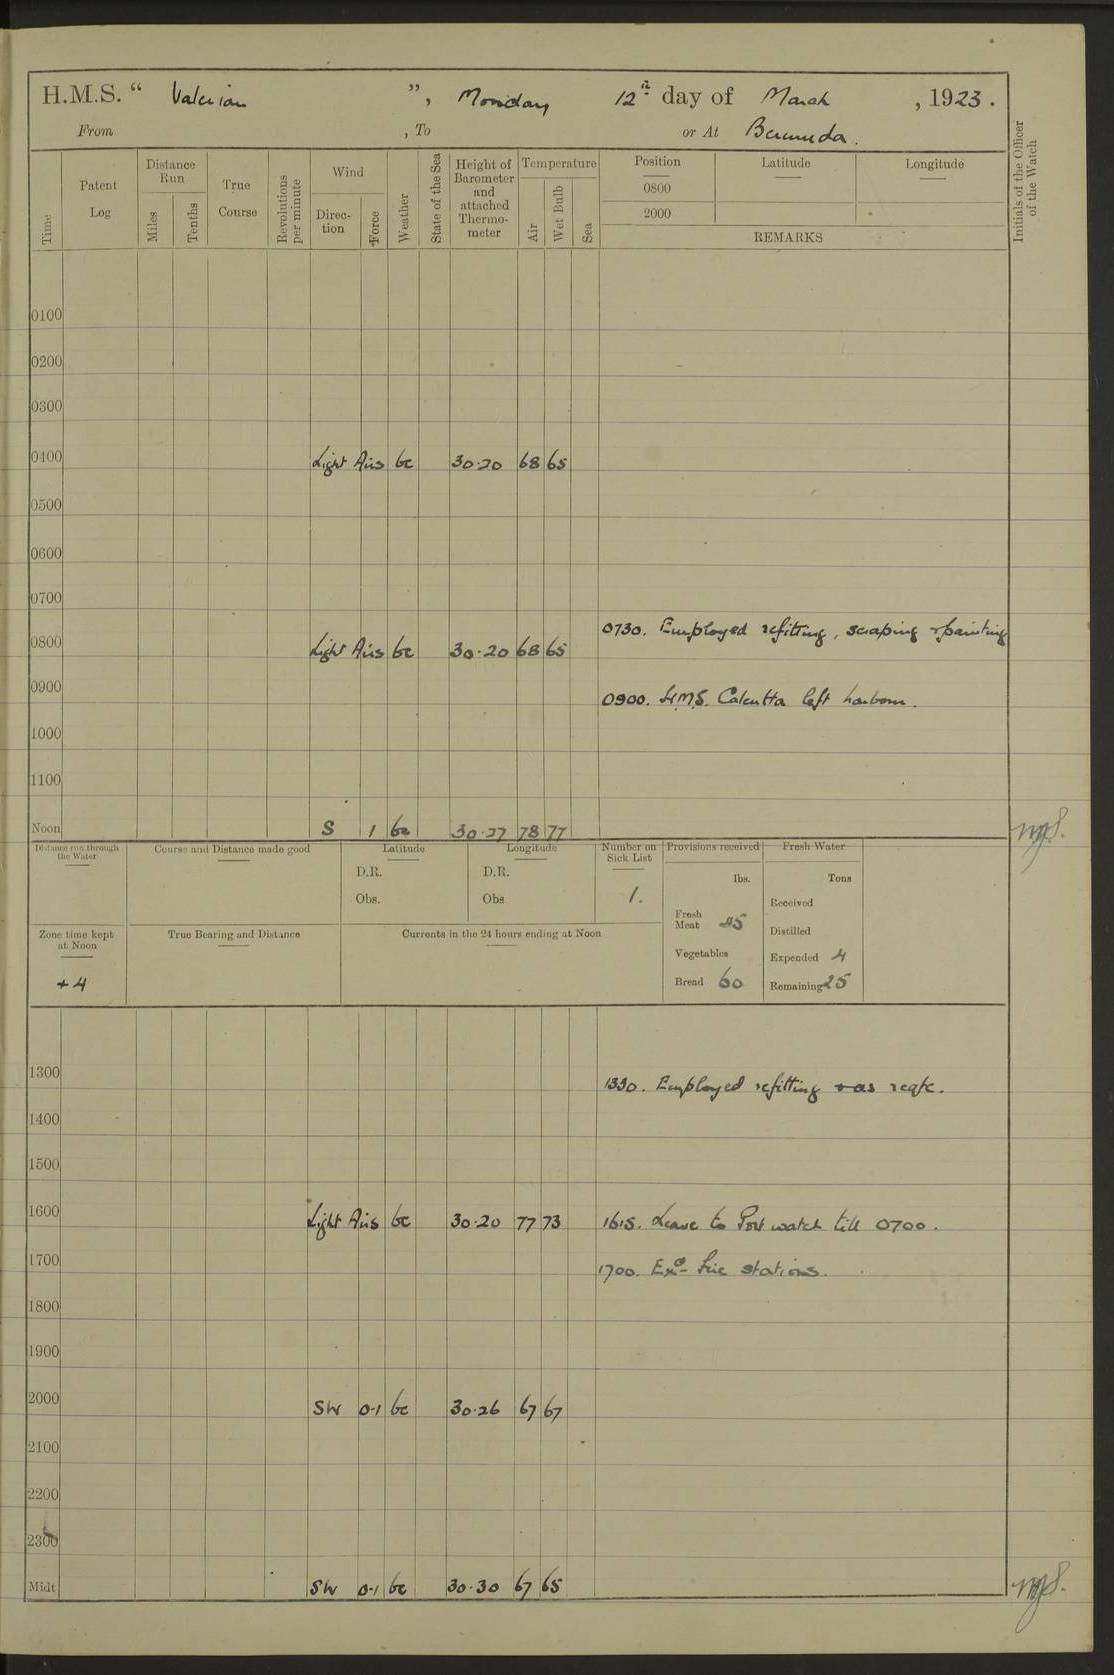 H.M.S. “ Valerian ”, Monday 12th day of March, 1923.
From , To or At Bermuda.
Time
Patent Log
Distance Run
Miles
Tenths
True Course
Revolutions per minute
Wind
Direc- tion
Force
Weather
State of the Sea
Height of Barometer and attached Thermo- meter
Temperature
Air
Wet Bulb
Sea
Position Latitude Longitude
0800
2000
REMARKS
Initials of the Officer of the Watch
0100
0200
0300
0400 Light Airs bc 30.20 68 65
0500
0600
0700
0730. Employed refitting, scraping + painting
0800 Light Airs bc 30.20 68 65
0900 0900. H.M.S. Calcutta left harbour.
1000
1100
Noon S 1 bc 30.27 78 77
Distance run through the Water
Course and Distance made good
Latitude
D.R.
Obs.
Longitude
D.R.
Obs
Number on Sick List
1.
Provisions received
lbs.
Fresh Meat 45
Vegetables
Bread 60
Fresh Water
Tons
Received
Distilled
Expended 4
Remaining 25
Zone time kept at Noon
+4
True Bearing and Distance
Currents in the 24 hours ending at Noon
1300 1330. Employed refitting + as reqte.
1400
1500
1600 Light Airs bc 30.20 77 73 1615. Leave to Port watch till 0700.
1700 1700. Exd. fire stations.
1800
1900
2000 SW 0-1 bc 30.26 67 67
2100
2200
2300
Midt SW 0-1 bc 30.30 67 65